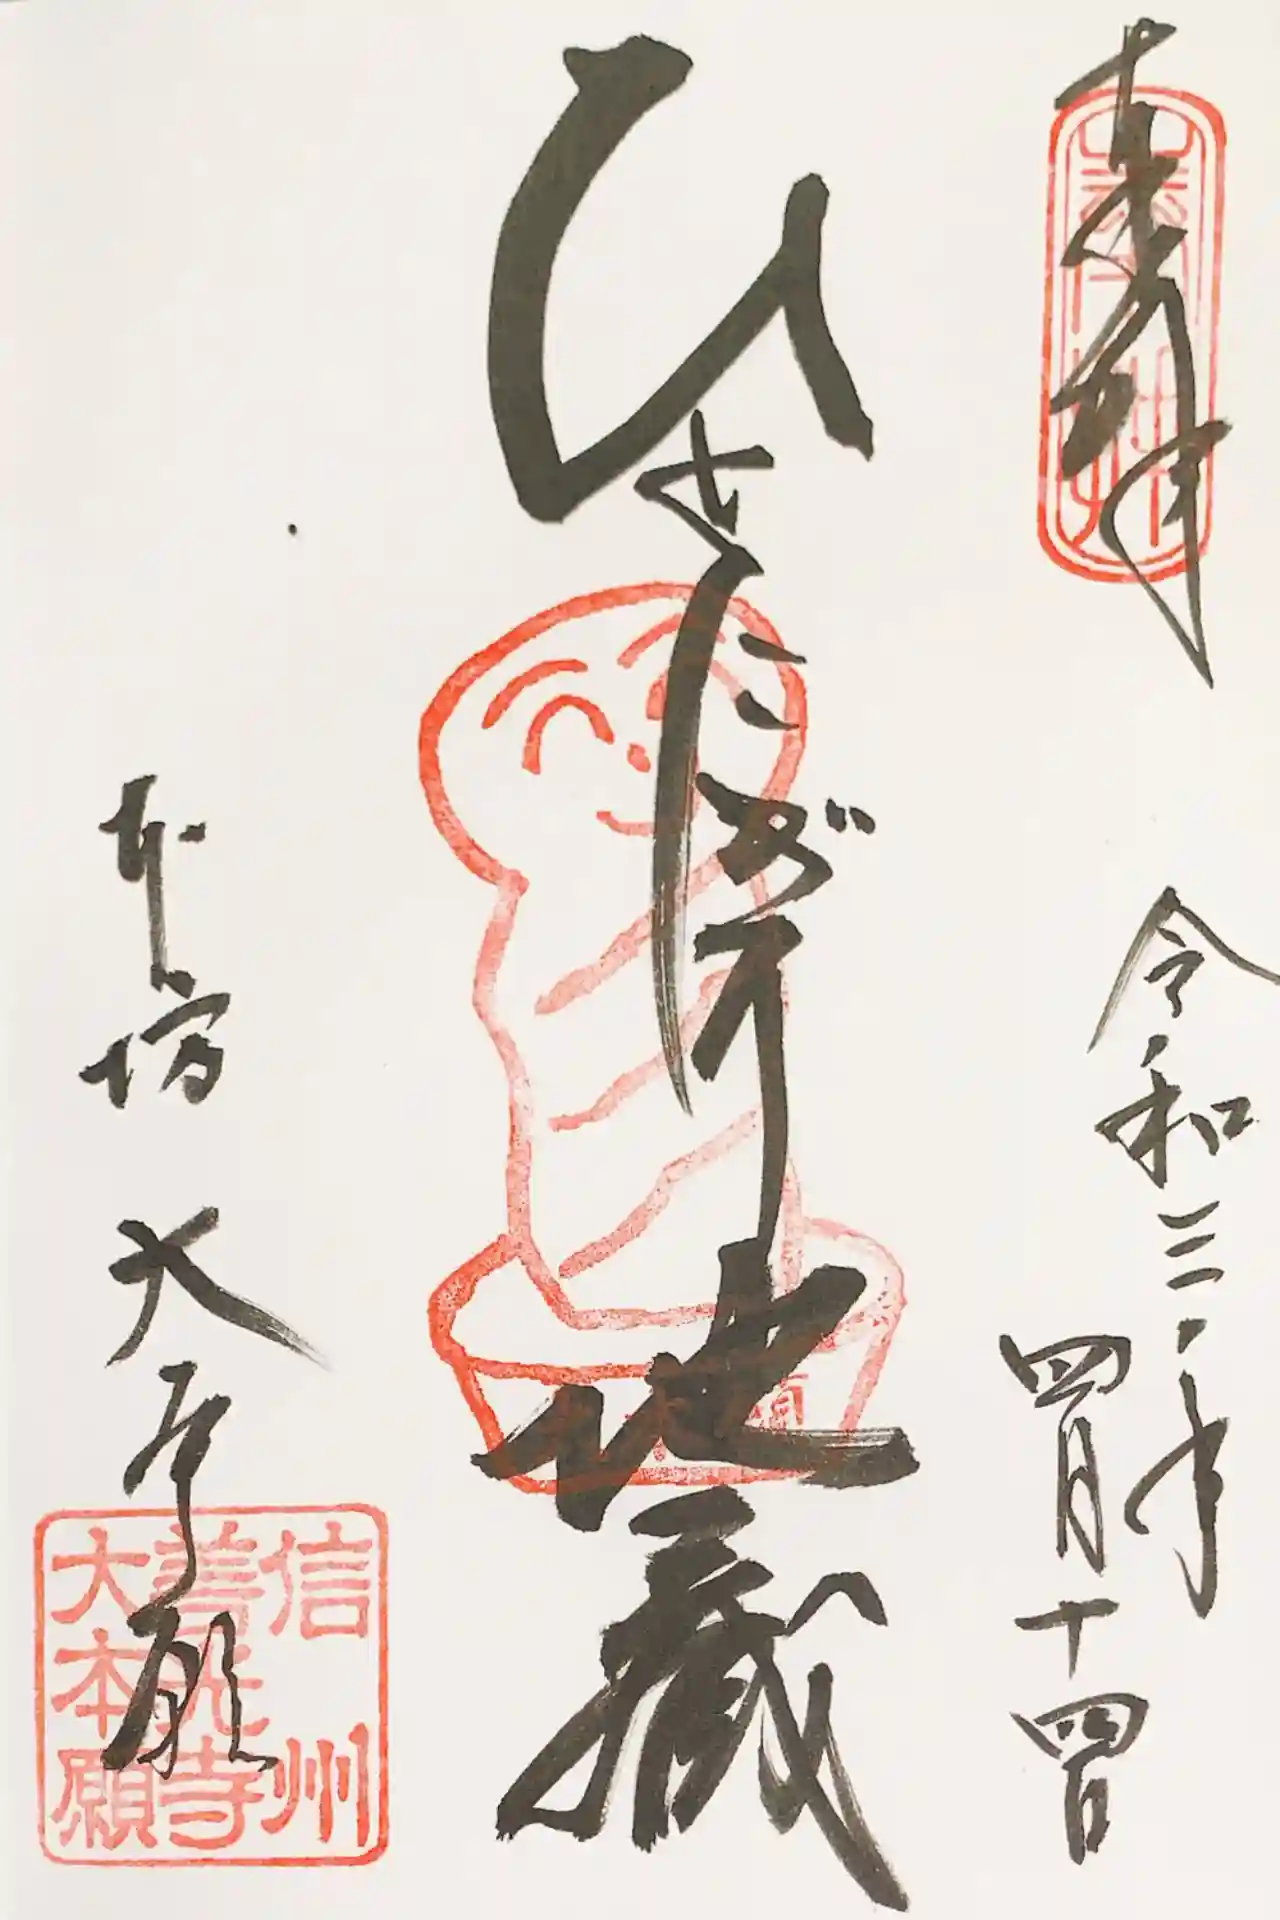 奉拝
令和三年
四月十四日
ひとにぎり地蔵
本坊 大本願
信州
善光寺
大本願